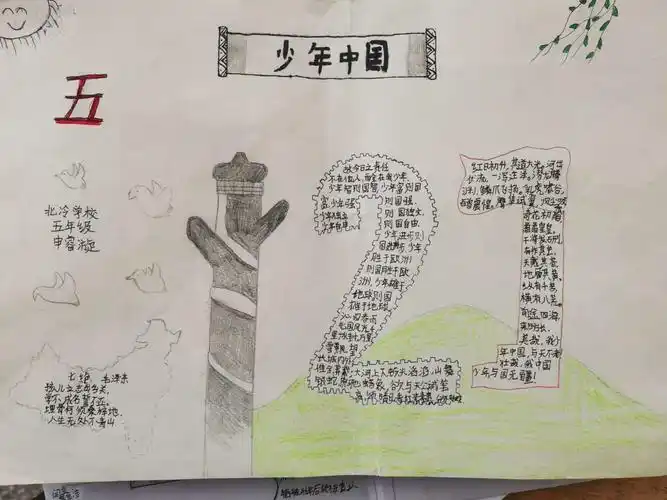 少年中国
五
北冷学校
五年级
七绝 毛泽东
孩儿立志出乡关,
学不成名誓不还。
埋骨何须桑梓地,
人生无处不青山
故今日之责任
不在他人,而全在我少年
少年智则国智,少年富则国
富,少年强
则国强,
少年独立
则国独立,
则国自由,
少年进步则
国进步,少年
胜于欧洲
则国胜于欧
洲,少年雄于
地球则国
雄于地球。
北国风光,千
里冰封,万里
雪飘。望
长城内外,
大河上下,顿失滔滔。山舞
银蛇,原驰蜡象,欲与天公试比
红日初升,其道大光。河出
伏流,一泻汪洋。潜龙腾
渊,鳞爪飞扬。乳虎啸谷,
百兽震惶。鹰隼试翼,风尘吸张。
奇花初胎
矞矞皇皇。
干将发硎,
有作其芒。
天戴其苍,
地履其黄。
纵有千古,
横有八荒。
前途似海,
来日方长。
美哉,我少
年中国,与天不老
壮哉,我中国
少年与国无疆!